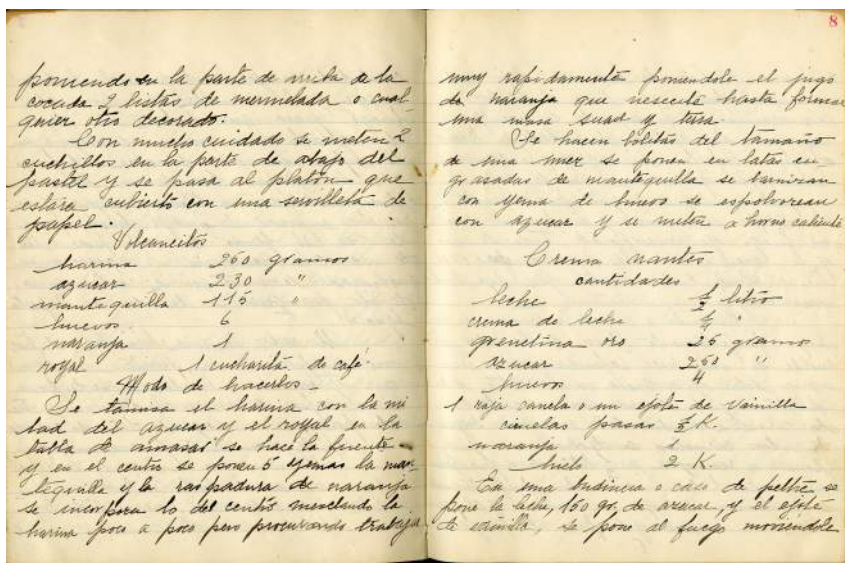 poniendo en la parte de arriba de la
cocada 2 listas de mermelada o cual
quier otro decorado.
Con mucho cuidado se meten 2
cuchillos en la parte de abajo del
pastel y se pasa al platon que
estara cubierto con una servilleta de
papel.
Volcancitos
harina 260 gramos
azucar 230 "
mantequilla 115 "
huevos 6
naranja 1
royal 1 cucharita de café.
Modo de hacerlos -
Se tamisa el harina con la mi
tad del azucar y el royal en la
tabla de amasar se hace la fuente
y en el centro se ponen 5 yemas la man
tequilla y la raspadura de naranja
se incorpora lo del centro mesclando la
harina poco a poco pero procurando trabajar
8
muy rapidamente poniendole el jugo
de naranja que nesecite hasta formar
una masa suave y tersa
Se hacen bolitas del tamaño
de una nuez se ponen en latas en
grasadas de mantequilla se barnizan
con yema de huevo se espolvorean
con azucar y se meten a horno caliente
Crema nantes
cantidades
leche 1/2 litro
crema de leche 1/4 "
grenetina oro 25 gramos
azucar 250 "
huevos 4
1 raja canela o un ejote de vainilla
ciruelas pasas K.
naranja 1
hielo 2 K.
En una o caso de peltre se
pone la leche, 150 gr. de azucar, y el ejote
de vainilla, se pone al fuego moviendole